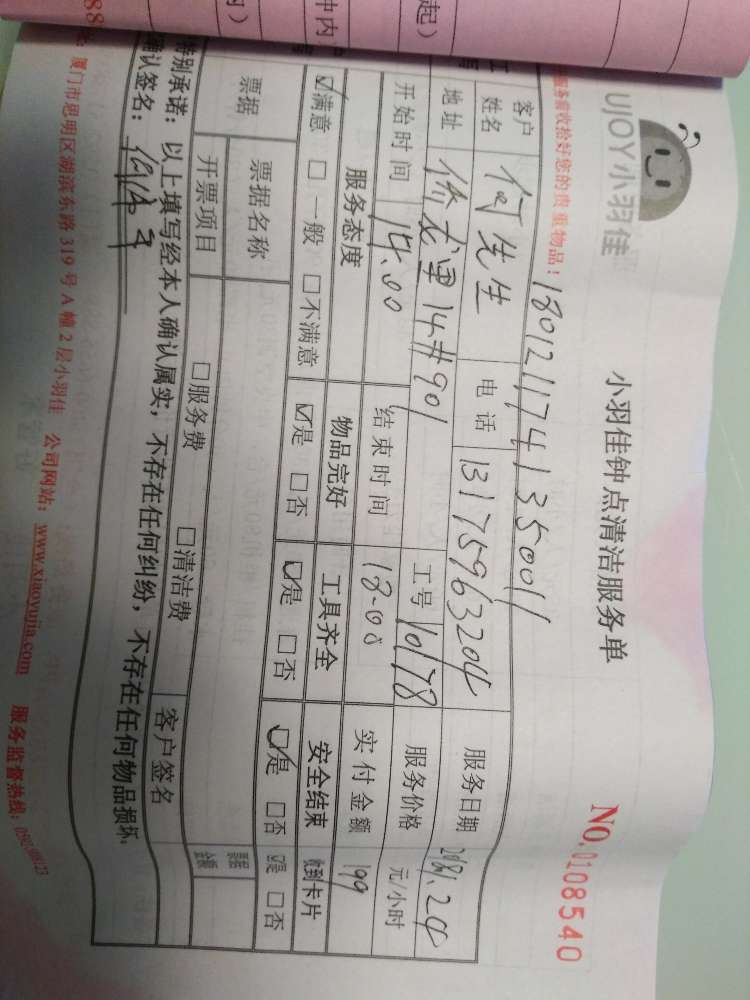 UJOY小羽佳
小羽佳钟点清洁服务单
NO.0108540
服务前收拾好您的贵重物品！
180121174135001
客户姓名 何先生 电话 13175963204 服务日期 2018.1.24
地址 龙里14#901 工号 10178 服务价格 元/小时
开始时间 14.00 结束时间 18-00 实付金额 199
服务态度 物品完好 工具齐全 安全结束 收到卡片
☑满意 □一般 □不满意 ☑是 □否 ☑是 □否 ☑是 □否 ☑是 □否
票据 票据名称 票据金额
开票项目 □服务费 □清洁费
特别承诺：以上填写经本人确认属实，不存在任何纠纷，不存在任何物品损坏.
客户签名
确认签名：
厦门市思明区湖滨东路319号A幢2层小羽佳 公司网站：www.xiaoyujia.com 服务监督热线：